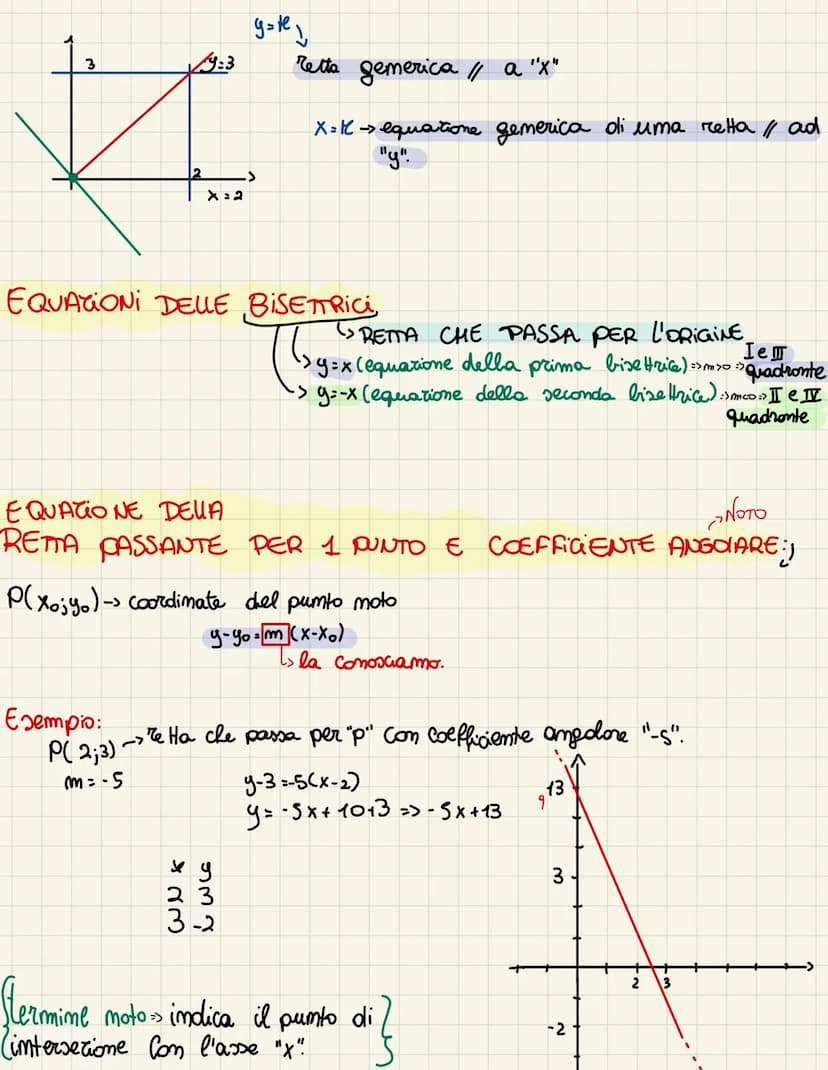 y=k
3
y=3
retta generica // a "x"
x=k → equazione generica di una retta // ad
"y".
2
x=2
EQUAZIONI DELLE BISETTRICI
↳ RETTA CHE PASSA PER L'ORIGINE
↳ y=x (equazione della prima bisettrice) => m>0 => I e III quadrante
↳ y=-x (equazione della seconda bisettrice) => m<0 => II e IV
quadrante
EQUAZIONE DELLA
→ NOTO
RETTA PASSANTE PER 1 PUNTO E COEFFICIENTE ANGOLARE:
P(x₀;y₀) → coordinate del punto noto
y-y₀=m(x-x₀)
↳ la conosciamo.
Esempio:
P(2;3) → retta che passa per "p" con coefficiente angolare "-5".
m=-5
y-3=-5(x-2)
y=-5x+10+3 => -5x+13
q 13
x y
2 3
3 -2
3
2 3
-2
termine noto => indica il punto di
intersezione con l'asse "x".